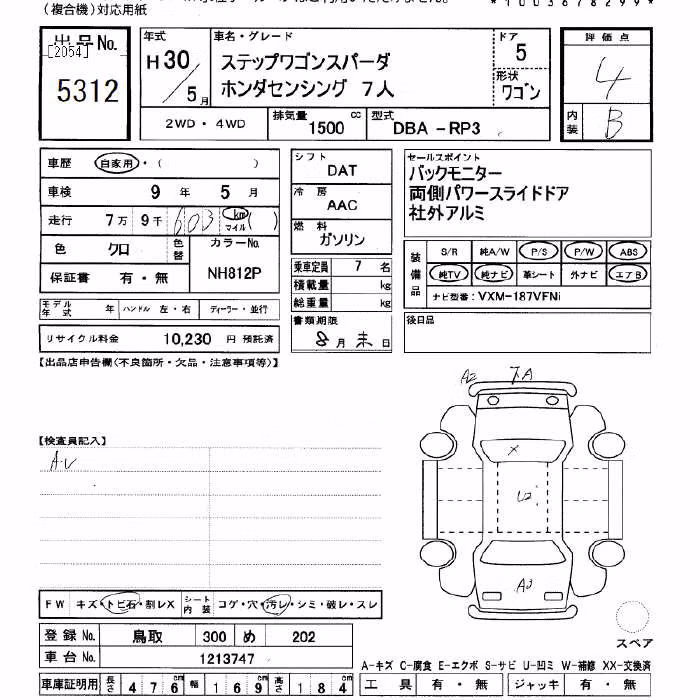 (複合機)対応用紙
*1003678299*
出品No.
[2054]
5312
年式
H30/5月
車名・グレード
ステップワゴンスパーダ
ホンダセンシング 7人
ドア
5
形状
ワゴン
評価点
4
内装
B
2WD・4WD
排気量 1500 cc
型式 DBA-RP3
車歴 自家用・( )
車検 9年 5月
走行 7万 9千 603 km マイル ( )
色 クロ
色替
カラーNo.
NH812P
保証書 有・無
モデル年式 年 ハンドル 左・右 ディーラー・並行
リサイクル料金 10,230 円 預託済
シフト
DAT
冷房
AAC
燃料
ガソリン
乗車定員 7 名
積載量 kg
総重量 kg
書類期限
8月末日
セールスポイント
バックモニター
両側パワースライドドア
社外アルミ
装備品
S/R 純A/W P/S P/W ABS
純TV 純ナビ 革シート 外ナビ エアB
ナビ型番:VXM-187VFNi
後日品
【出品店申告欄(不良箇所・欠品・注意事項等)】
【検査員記入】
A・U
A2 7A
X
U2
A2
スペア
FW キズ・トビ石・割レX
シート内装 コゲ・穴・汚レ・シミ・破レ・スレ
登録No. 鳥取 300 め 202
車台No. 1213747
車庫証明用 長さ 476cm 幅 169cm 高さ 184cm
A-キズ C-腐食 E-エクボ S-サビ U-凹ミ W-補修 XX-交換済
工具 有・無 ジャッキ 有・無